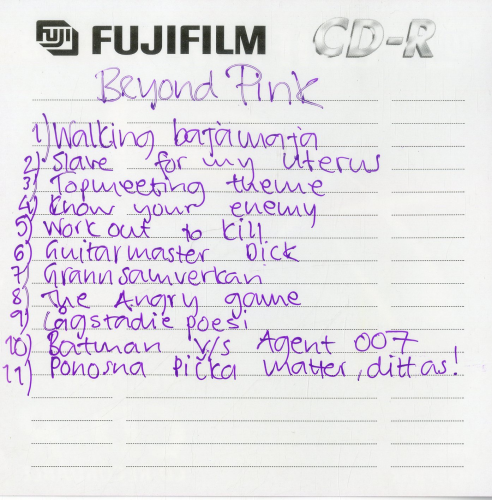 FUJI FUJIFILM CD-R
Beyond Pink
1) Walking bajamaja
2) Slave for my uterus
3) Topmeeting theme
4) Know your enemy
5) Work out to kill
6) Guitarmaster Dick
7) Grannsamverkan
8) The Angry game
9) Lågstadie poesi
10) Batman v/s Agent 007
11) Ponosna Pička matter, dittas!